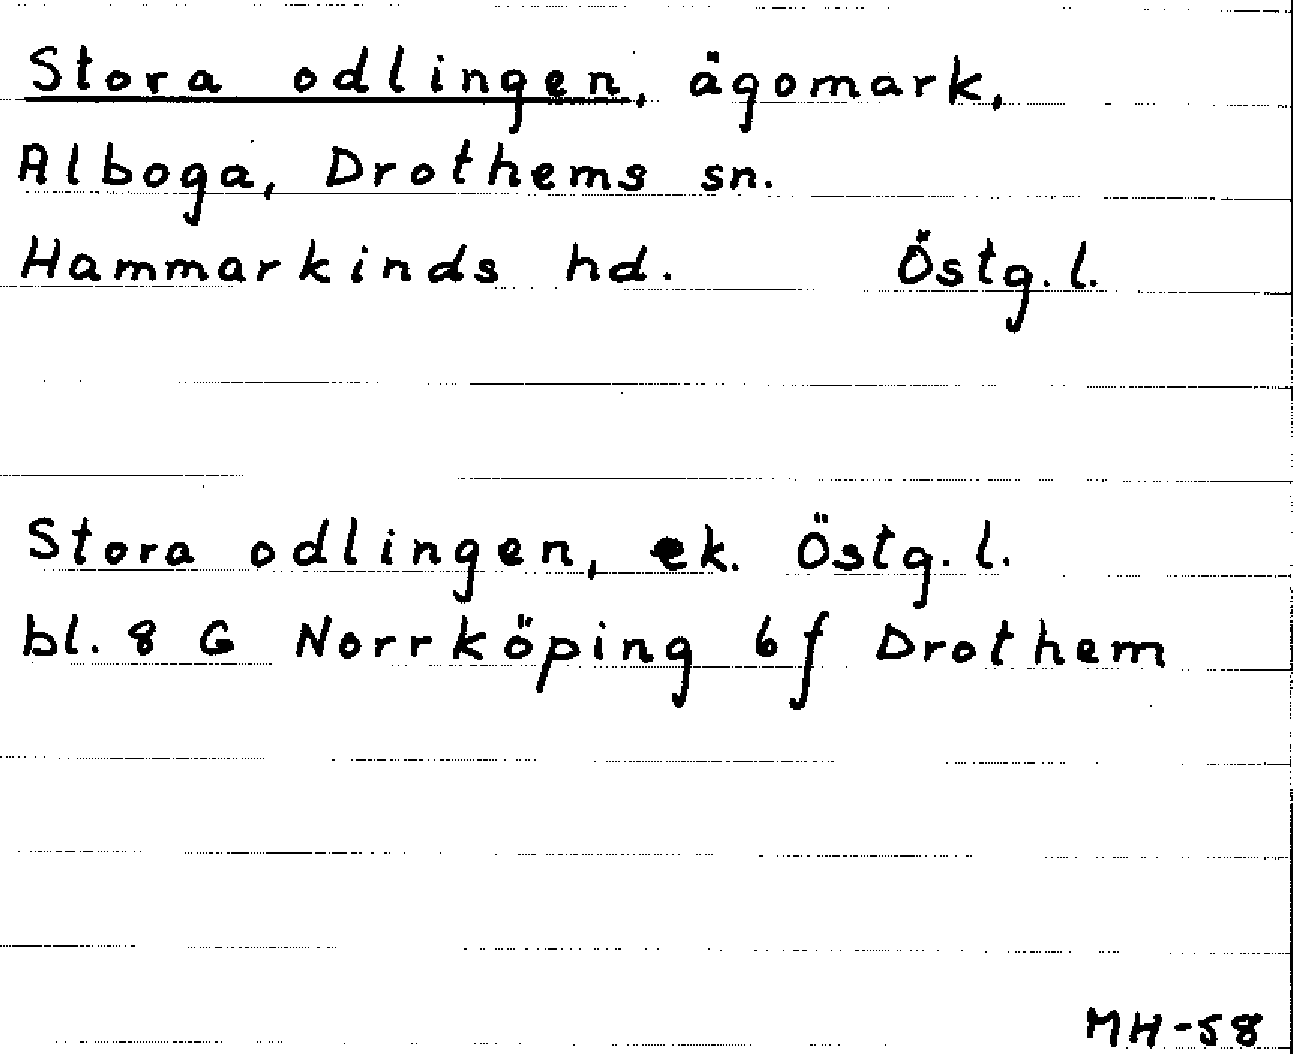 Stora odlingen, ägomark,
Alboga, Drothems sn.
Hammarkinds hd. Östg. l.
Stora odlingen, ek. Östg. l.
bl. 8 G Norrköping 6f Drothem
MH-58